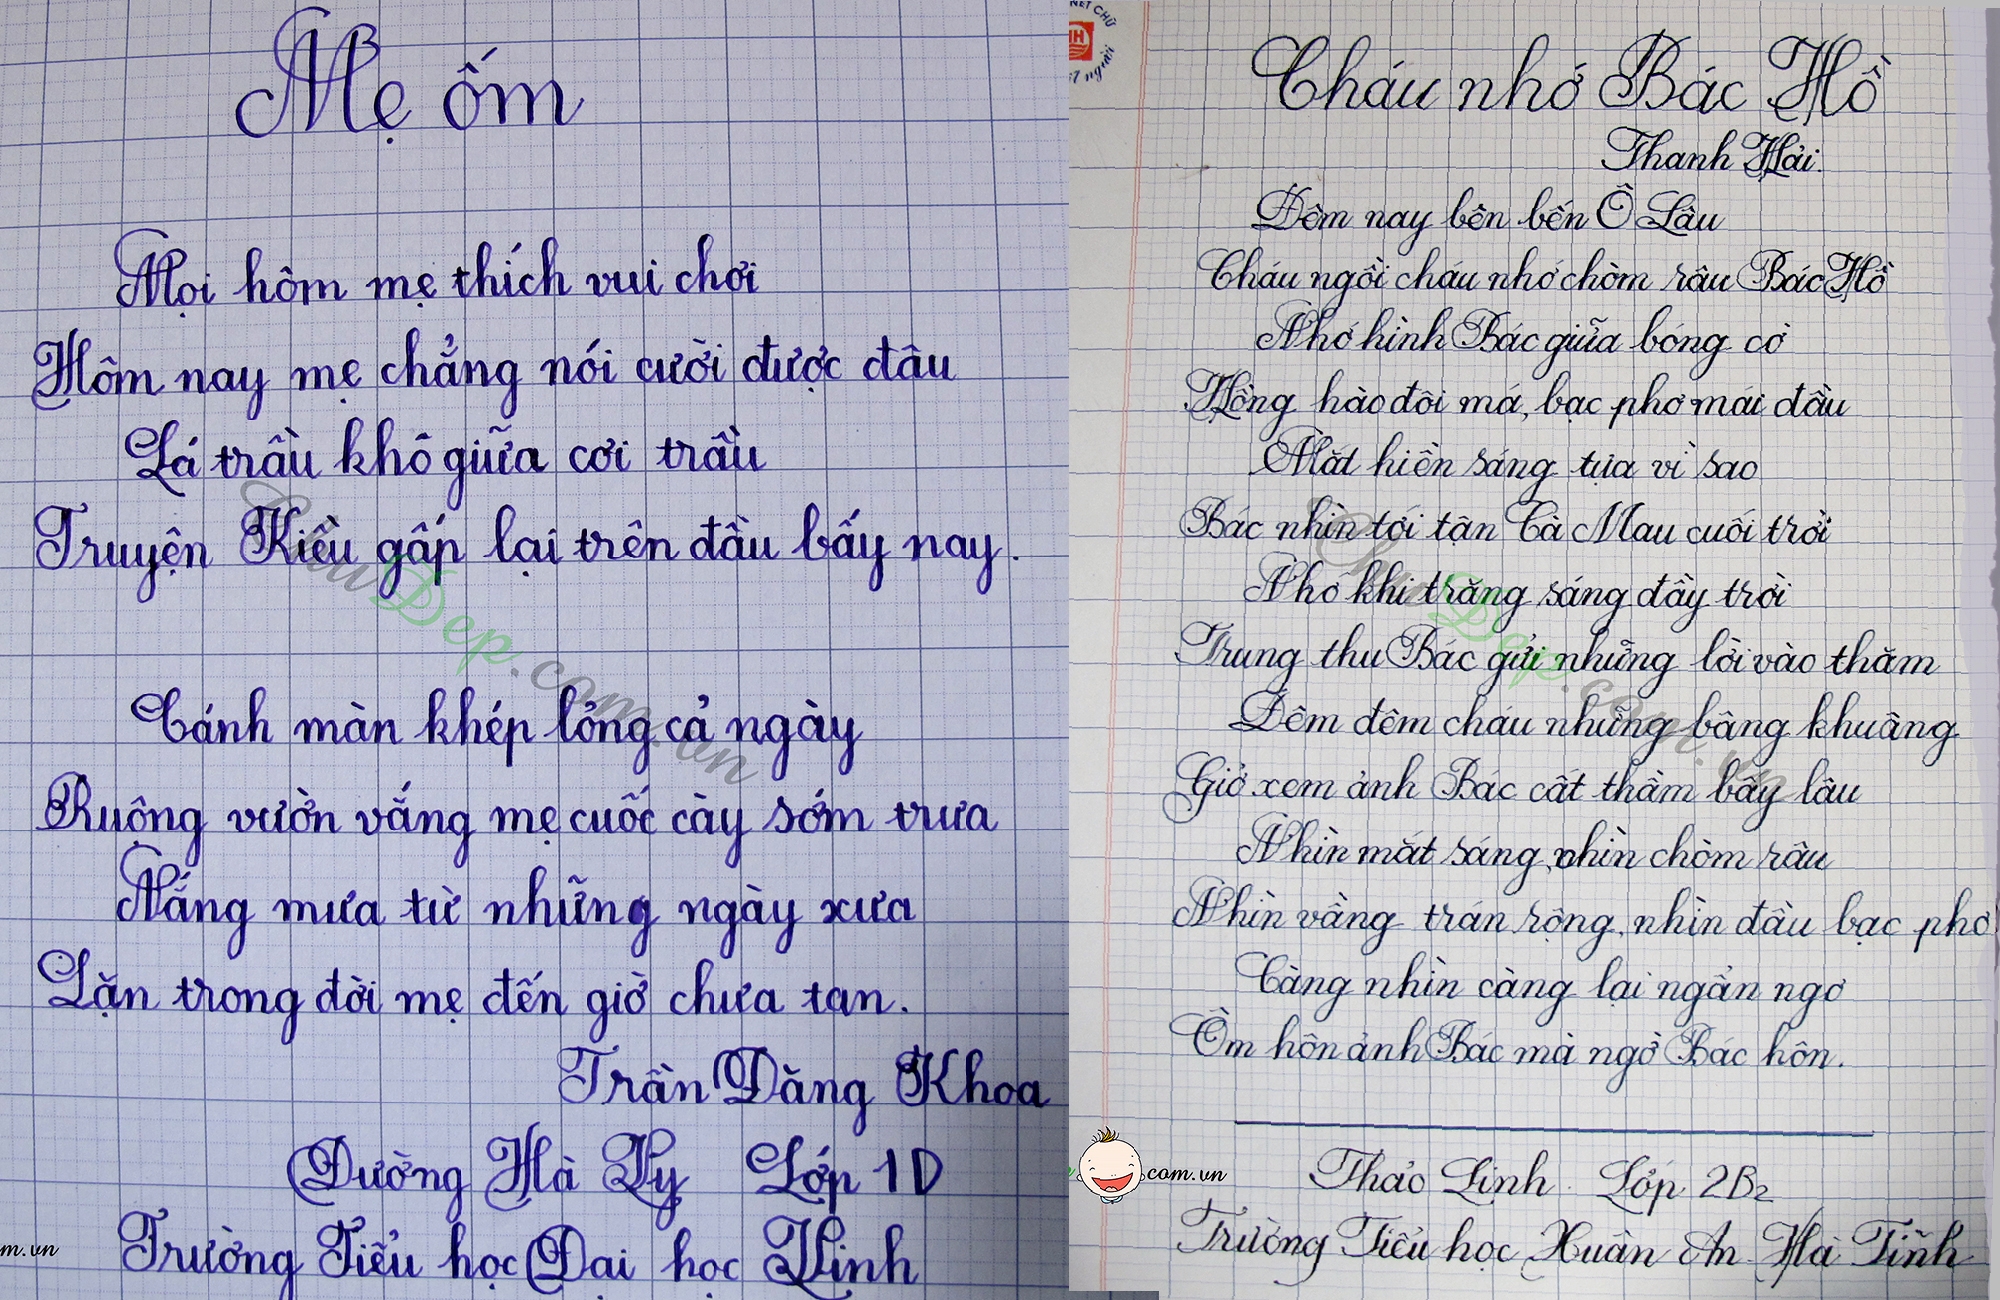 Mẹ ốm
Mọi hôm mẹ thích vui chơi
Hôm nay mẹ chẳng nói cười được đâu
Lá trầu khô giữa cơi trầu
Truyện Kiều gấp lại trên đầu bấy nay.
Cánh màn khép lỏng cả ngày
Ruộng vườn vắng mẹ cuốc cày sớm trưa
Nắng mưa từ những ngày xưa
Lặn trong đời mẹ đến giờ chưa tan.
Trần Đăng Khoa
Dường Hà Vy Lớp 1D
Trường Tiểu học Đại học Vinh
m.vn
ChuDep.com.vn
NÉT CHỮ
NH
nết người
Cháu nhớ Bác Hồ
Thanh Hải.
Đêm nay bên bến Ô Lâu
Cháu ngồi cháu nhớ chòm râu Bác Hồ
Nhớ hình Bác giữa bóng cờ
Hồng hào đôi má, bạc phơ mái đầu
Mắt hiền sáng tựa vì sao
Bác nhìn tới tận Cà Mau cuối trời
Nhớ khi trăng sáng đầy trời
Trung thu Bác gửi những lời vào thăm
Đêm đêm cháu những bâng khuâng
Giở xem ảnh Bác cất thầm bấy lâu
Nhìn mắt sáng, nhìn chòm râu
Nhìn vầng trán rộng, nhìn đầu bạc phơ
Càng nhìn càng lại ngẩn ngơ
Ôm hôn ảnh Bác mà ngờ Bác hôn.
Thảo Linh. Lớp 2B2
Trường Tiểu học Xuân An. Hà Tĩnh
com.vn
ChuDep.com.vn